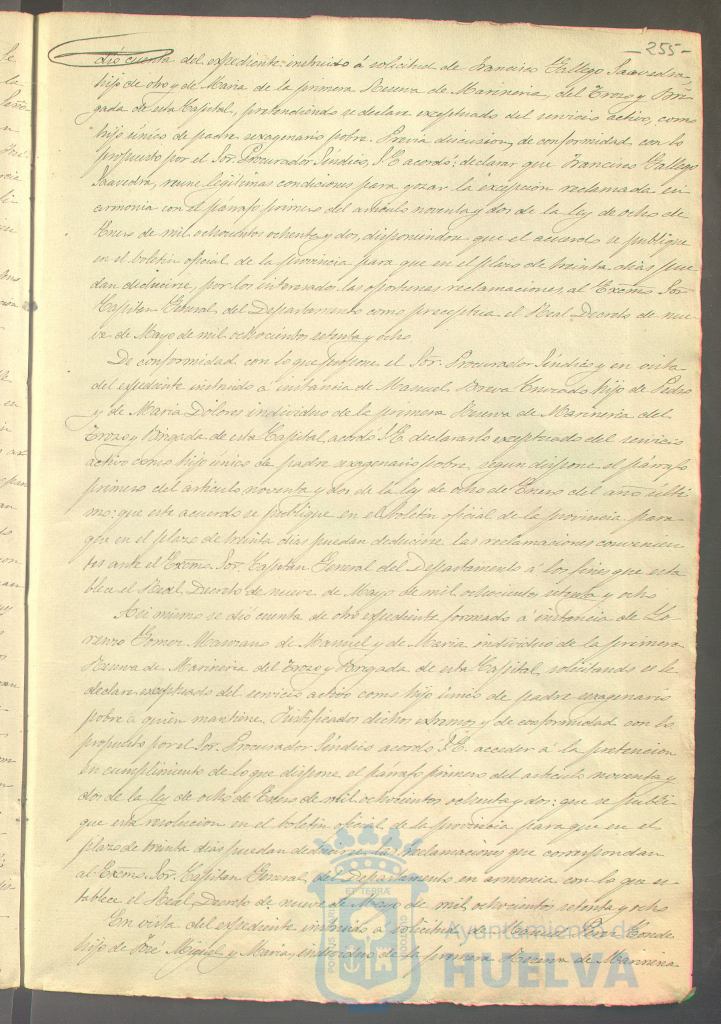 -255-
dió cuenta del expediente instruido á solicitud de Francisco Gallego Saavedra,
hijo de otro y de Maria de la primera Reserva de Marineria, del Trozo y Bri-
gada de esta Capital, pretendiendo se declare exceptuado del servicio activo, como
hijo único de padre sexagenario pobre. Prévia discusion, de conformidad con lo
propuesto por el Sor. Procurador Síndico, S. E. acordó: declarar que Francisco Gallego
Saavedra, reune legítimas condiciones para gozar la excepcion reclamada en
armonia con el párrafo primero del articulo noventa y dos de la ley de ocho de
Enero de mil ochocientos ochenta y dos, disponiendo que el acuerdo se publique
en el boletin oficial de la provincia para que en el plazo de treinta dias pue-
dan deducirse, por los interesados las oportunas reclamaciones, al Excmo. Sor.
Capitan General del Departamento como preceptúa el Real Decreto de nue-
ve de Mayo de mil ochocientos setenta y ocho.
De conformidad con lo que propone el Sor. Procurador Síndico y en vista
del expediente instruido á instancia de Manuel hijo de Pedro
y de Maria Dolores individuo de la primera Reserva de Marineria del
Trozo y Brigada de esta Capital, acordó S. E. declararlo exceptuado del servicio
activo como hijo único de padre sexagenario pobre, segun dispone el párrafo
primero del articulo noventa y dos de la ley de ocho de Enero del año últi-
mo: que este acuerdo se publique en el boletin oficial de la provincia para
que en el plazo de treinta dias puedan deducirse las reclamaciones convenien-
tes ante el Excmo. Sor. Capitan General del Departamento á los fines que esta-
blece el Real Decreto de nueve de Mayo de mil ochocientos setenta y ocho
Asi mismo se dió cuenta de otro expediente formado á instancia de Lo-
renzo Gomez Manzano de Manuel y de Maria individuo de la primera
Reserva de Marineria del Trozo y Brigada de esta Capital, solicitando se le
declare exceptuado del servicio activo como hijo único de padre sexagenario
pobre á quien mantiene. Justificados dichos extremos y de conformidad con lo
propuesto por el Sor. Procurador Síndico acordó S. E. acceder á la pretencion
en cumplimiento de lo que dispone el párrafo primero del articulo noventa y
dos de la ley de ocho de Enero de mil ochocientos ochenta y dos: que se publi-
que esta resolucion en el boletin oficial de la provincia para que en el
plazo de treinta dias puedan deducirse las reclamaciones que correspondan
al Excmo. Sor. Capitan General del Departamento en armonia con lo que es-
tablece el Real Decreto de nueve de Mayo de mil ochocientos setenta y ocho
En vista del expediente instruido á solicitud de Manuel Perez Conde
hijo de José Miguel y Maria, individuo de la primera Reserva de Marineria
Ayuntamiento de
HUELVA